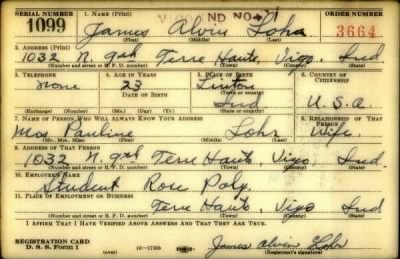 SERIAL NUMBER 1. NAME (Print) ORDER NUMBER
1099 James Alvin Lohr 3664
(First) (Middle) (Last)
2. ADDRESS (Print)
1032 N. 9rd Terre Haute, Vigo, Ind
(Number and street or R. F. D. number) (Town) (County) (State)
3. TELEPHONE 4. AGE IN YEARS 5. PLACE OF BIRTH 6. COUNTRY OF CITIZENSHIP
None 23 Linton
DATE OF BIRTH
Ind U.S.A.
(Exchange) (Number) (Mo.) (Day) (Yr.) (State or country)
7. NAME OF PERSON WHO WILL ALWAYS KNOW YOUR ADDRESS 8. RELATIONSHIP OF THAT PERSON
Mrs Pauline Lohr Wife
(Mr., Mrs., Miss) (First) (Middle) (Last)
9. ADDRESS OF THAT PERSON
1032 N. Terre Haute, Vigo, Ind.
(Number and street or R. F. D. number) (Town) (County) (State)
10. EMPLOYER'S NAME
Student Rose Poly.
11. PLACE OF EMPLOYMENT OR BUSINESS
Terre Haute, Vigo Ind
(Number and street or R. F. D. number) (Town) (County) (State)
I AFFIRM THAT I HAVE VERIFIED ABOVE ANSWERS AND THAT THEY ARE TRUE.
REGISTRATION CARD
D. S. S. Form 1 16—17105 James Alvin Lohr
(over) (Registrant's signature)